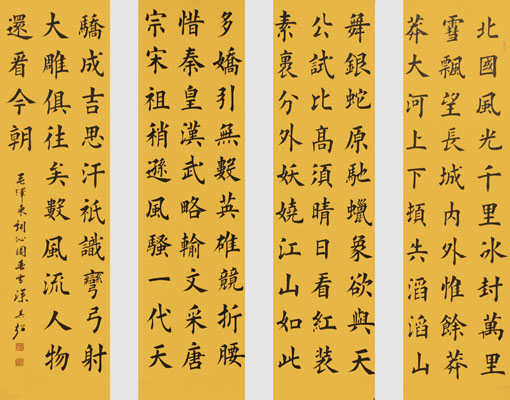 北國風光千里冰封萬里
雪飄望長城內外惟餘莽
莽大河上下頓失滔滔山
舞銀蛇原馳蠟象欲與天
公試比高須晴日看紅裝
素裹分外妖嬈江山如此
多嬌引無數英雄競折腰
惜秦皇漢武略輸文采唐
宗宋祖稍遜風騷一代天
驕成吉思汗祇識彎弓射
大雕俱往矣數風流人物
還看今朝
毛澤東詞沁園春雪